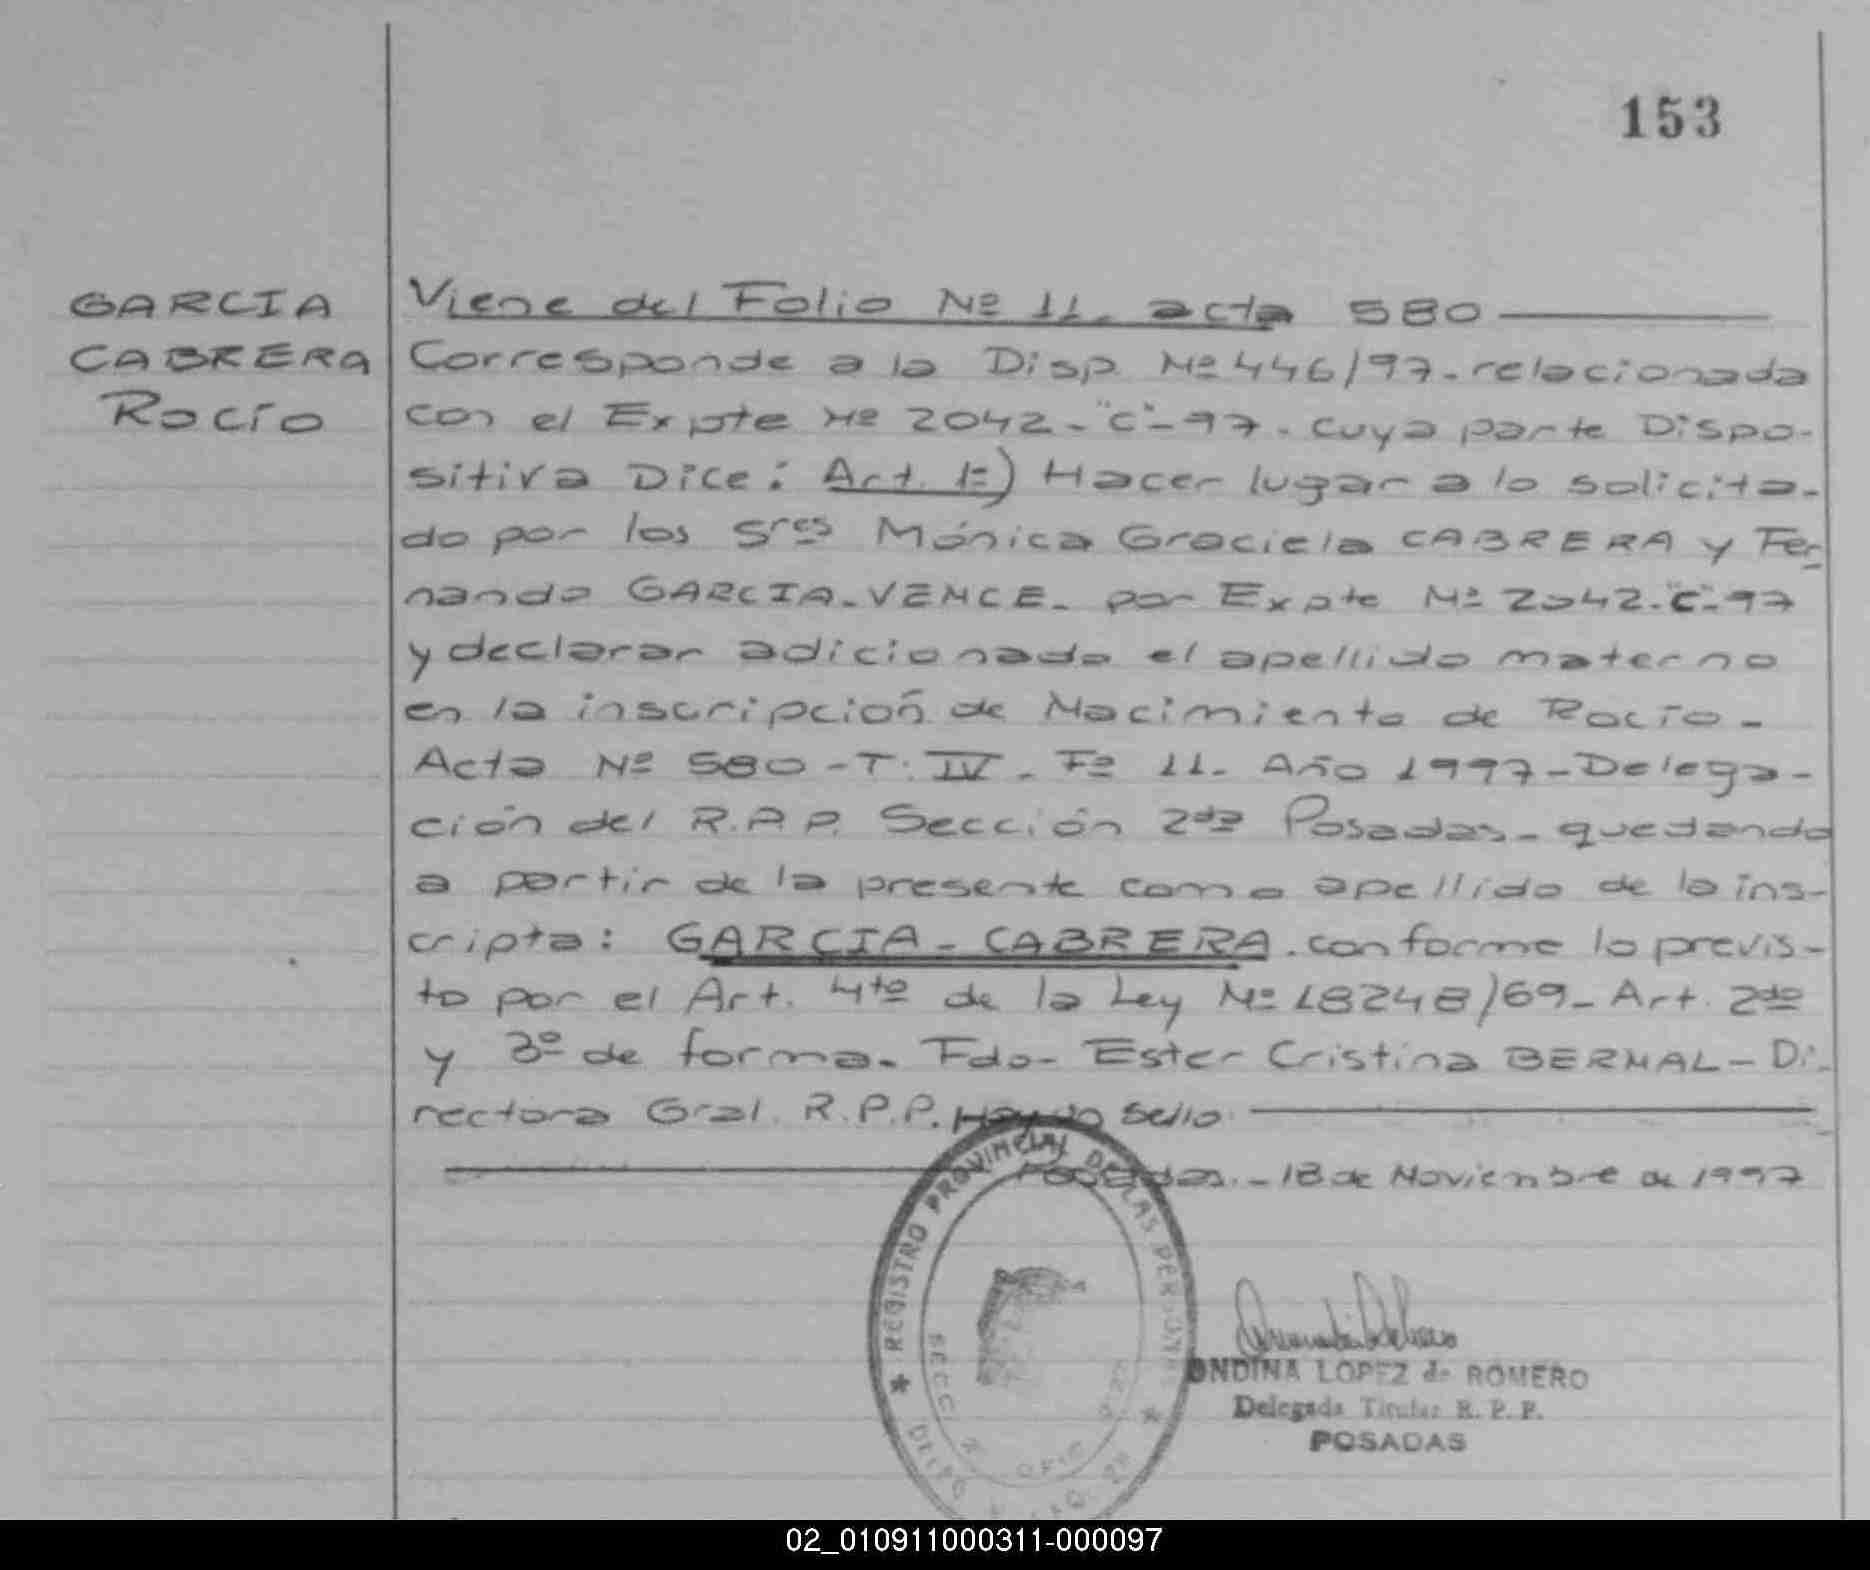 153
GARCIA
CABRERA
Rocío
Viene del Folio Nº 11. acta 580
Corresponde a la Disp. Nº 446/97. relacionada
con el Expte Nº 2042-"C"-97. cuya parte Dispo-
sitiva Dice: Art. 1º) Hacer lugar a lo solicita-
do por los Sres Mónica Graciela CABRERA y Fer-
nando GARCIA-VENCE. por Expte Nº 2042-"C"-97
y declarar adicionado el apellido materno
en la inscripción de Nacimiento de Rocío-
Acta Nº 580 - T. IV. Fº 11. Año 1997-Delega-
ción del R.P.P. Sección 2da Posadas- quedando
a partir de la presente como apellido de la ins-
cripta: GARCIA-CABRERA. conforme lo previs-
to por el Art. 4to de la Ley Nº 18248/69- Art. 2do
y 3º de forma. Fdo- Ester Cristina BERNAL- Di-
rectora Gral. R.P.P. Hay un Sello.
Posadas.- 18 de Noviembre de 1997
★ REGISTRO PROVINCIAL DE LAS PERSONAS ★
SECC.
ONDINA LOPEZ de ROMERO
Delegada Titular R. P. P.
POSADAS
02_010911000311-000097